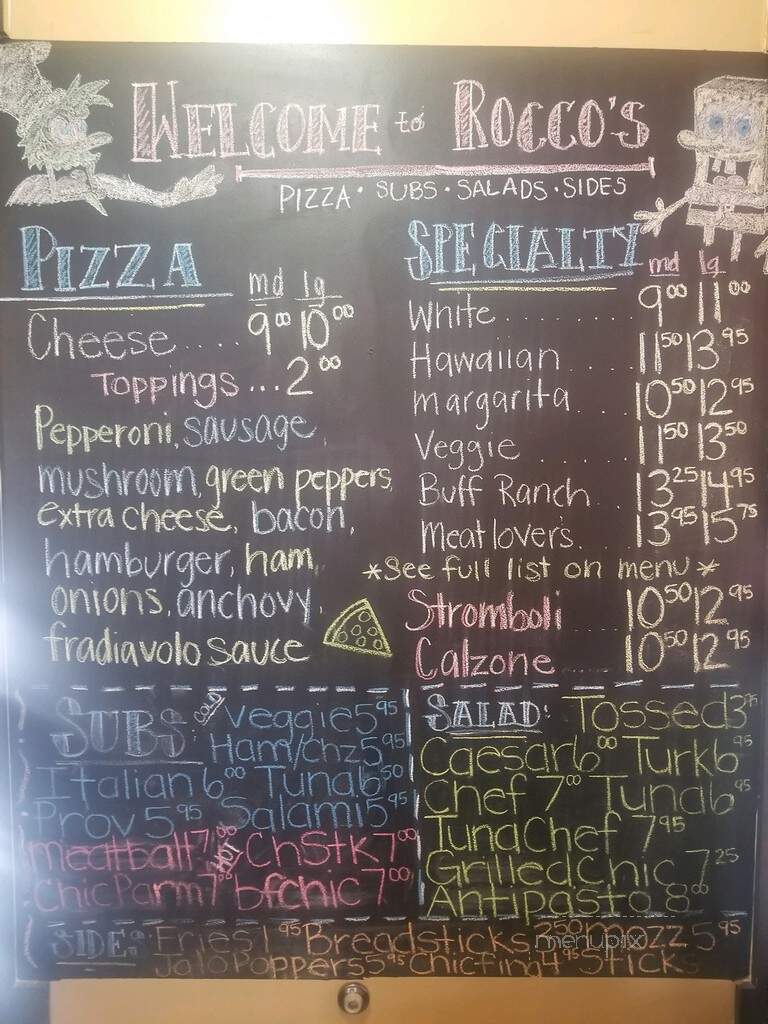 WELCOME to ROCCO'S
PIZZA · SUBS · SALADS · SIDES
PIZZA
md lg
Cheese..... 9⁰⁰ 10⁰⁰
Toppings...2⁰⁰
Pepperoni, sausage,
mushroom, green peppers,
extra cheese, bacon,
hamburger, ham,
onions, anchovy,
fradiavolo sauce
SPECIALTY
md lg
White........ 9⁰⁰ 11⁰⁰
Hawaiian..... 11⁵⁰ 13⁹⁵
margarita.... 10⁵⁰ 12⁹⁵
Veggie ...... 11⁵⁰ 13⁵⁰
Buff Ranch .. 13²⁵ 14⁹⁵
meatlovers... 13⁹⁵ 15⁷⁵
*See full list on menu*
Stromboli .... 10⁵⁰ 12⁹⁵
Calzone ...... 10⁵⁰ 12⁹⁵
SUBS: COLD veggie 5⁹⁵
Ham/chz 5⁹⁵
Italian 6⁰⁰ Tuna 6⁵⁰
Prov 5⁹⁵ Salami 5⁹⁵
meatball 7⁰⁰ HOT ChStk 7⁰⁰
ChicParm 7⁰⁰ bfchic 7⁰⁰
SALAD: Tossed 3
Caesar 6⁰⁰ Turk 6⁹⁵
Chef 7⁰⁰ Tuna 6⁹⁵
Tuna Chef 7⁹⁵
Grilled Chic 7²⁵
Antipasto 8⁰⁰
SIDES: Fries 1⁹⁵ Breadsticks 3⁵⁰ mozz 5⁹⁵
Jala Poppers 5⁹⁵ Chicfing 4⁹⁵ Sticks
menupix